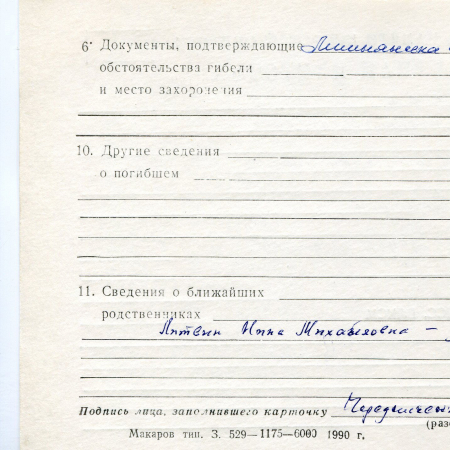 6· Документы, подтверждающие
обстоятельства гибели
и место захоронения
10. Другие сведения
о погибшем
11. Сведения о ближайших
родственниках
Литвин Нина Михайловна –
Подпись лица, заполнившего карточку
(раз
Макаров тип. З. 529—1175—6000 1990 г.